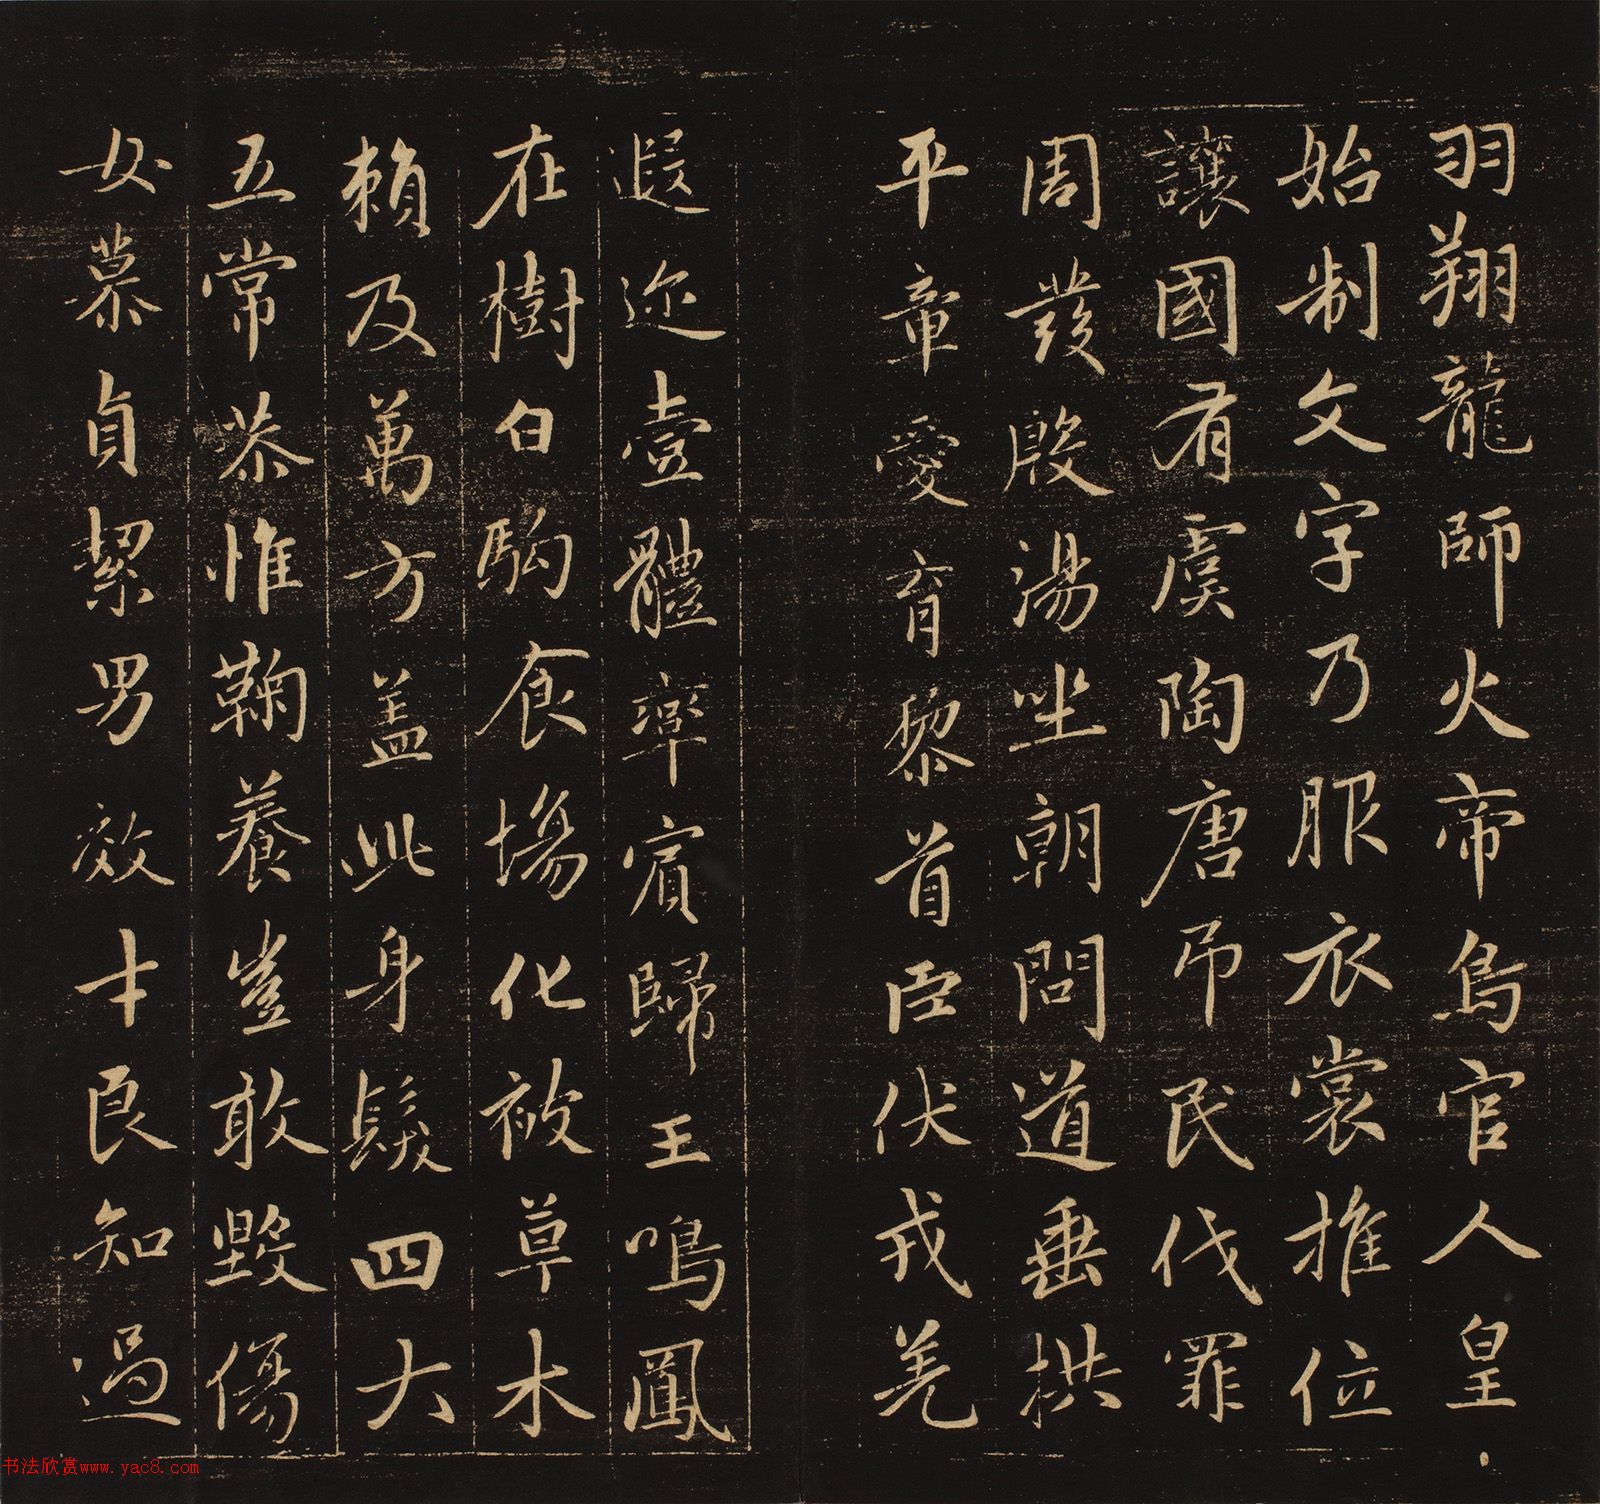 羽翔龍師火帝鳥官人皇
始制文字乃服衣裳推位
讓國有虞陶唐弔民伐罪
周發殷湯坐朝問道垂拱
平章愛育黎首臣伏戎羌
遐迩壹體率賓歸王鳴鳳
在樹白駒食場化被草木
賴及萬方盖此身髮四大
五常恭惟鞠養豈敢毀傷
女慕貞絜男效才良知過
书法欣赏www.yac8.com